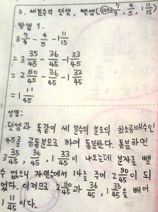 3. 세분수의 덧셈, 뺄셈 (3 7/9 - 4/5 - 1 11/15)
방법 1.
3 7/9 - 4/5 - 1 11/15
= 3 35/45 - 36/45 - 1 33/45
= 2 80/45 - 36/45 - 1 33/45
= 1 11/45
설명:
덧셈과 똑같이 세 분수의 분모의 최소공배수인
45를 공통분모로 하여 통분한다. 통분하면
3 35/45, 36/45, 1 33/45 이 나오는데 분자를 뺄
수 없으니 자연수에서 1과 주어 80/45 이 되
었다. 이러면 2 80/45 과 36/45, 1 33/45 을 빼어
1 11/45 이다.